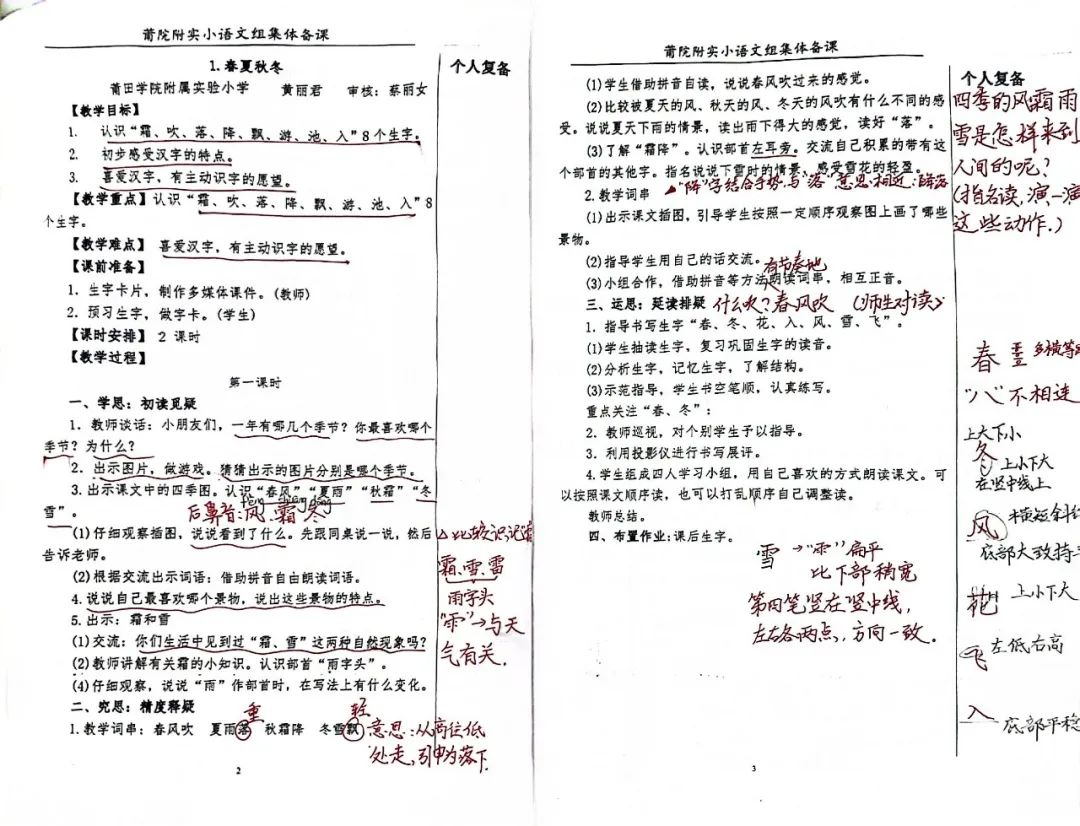 莆院附实小语文组集体备课
1.春夏秋冬
个人复备
莆田学院附属实验小学 黄丽君 审核：蔡丽女
【教学目标】
1. 认识“霜、吹、落、降、飘、游、池、入”8个生字。
2. 初步感受汉字的特点。
3. 喜爱汉字，有主动识字的愿望。
【教学重点】认识“霜、吹、落、降、飘、游、池、入”8
个生字。
【教学难点】喜爱汉字，有主动识字的愿望。
【课前准备】
1. 生字卡片，制作多媒体课件。（教师）
2. 预习生字，做字卡。（学生）
【课时安排】2 课时
【教学过程】
第一课时
一、学思：初读见疑
1. 教师谈话：小朋友们，一年有哪几个季节？你最喜欢哪个
季节？为什么？
2. 出示图片，做游戏。猜猜出示的图片分别是哪个季节。
3.出示课文中的四季图。认识“春风”“夏雨”“秋霜”“冬
雪”。
后鼻音：风 霜 冬
fēng shuāng dōng
(1)仔细观察插图，说说看到了什么。先跟同桌说一说，然后
告诉老师。
(2)根据交流出示词语：借助拼音自由朗读词语。
4.说说自己最喜欢哪个景物，说出这些景物的特点。
5.出示：霜和雪
(1)交流：你们生活中见到过“霜、雪”这两种自然现象吗？
(2)教师讲解有关霜的小知识。认识部首“雨字头”。
(4)仔细观察，说说“雨”作部首时，在写法上有什么变化。
二、究思：精度释疑
重 轻
1.教学词串：春风吹 夏雨落 秋霜降 冬雪飘
意思：从高往低
处走，引申为落下
△比较识记
霜、雪、雷
雨字头
“雨”→与天
气有关．
2
莆院附实小语文组集体备课
个人复备
(1)学生借助拼音自读，说说春风吹过来的感觉。
(2)比较被夏天的风、秋天的风、冬天的风吹有什么不同的感
受。说说夏天下雨的情景，读出雨下得大的感觉，读好“落”。
(3)了解“霜降”。认识部首左耳旁。交流自己积累的带有这
个部首的其他字。指名说说下雪时的情景，感受雪花的轻盈。
2.教学词串
“降”字结合手势，与“落”意思相近：降落
(1)出示课文插图，引导学生按照一定顺序观察图上画了哪些
景物。
(2)指导学生用自己的话交流。
有节奏地
(3)小组合作，借助拼音等方法朗读词串，相互正音。
三、运思：延读排疑
什么吹？春风吹 （师生对读）
1. 指导书写生字“春、冬、花、入、风、雪、飞”。
(1)学生抽读生字，复习巩固生字的读音。
(2)分析生字，记忆生字，了解结构。
(3)示范指导，学生书空笔顺，认真练写。
重点关注“春、冬”：
2. 教师巡视，对个别学生予以指导。
3. 利用投影仪进行书写展评。
4.学生组成四人学习小组，用自己喜欢的方式朗读课文。可
以按照课文顺序读，也可以打乱顺序自己调整读。
教师总结。
四、布置作业：课后生字。
雪 →“雨”扁平
比下部稍宽
第四笔竖在竖中线，
左右各两点，方向一致．
四季的风霜雨
雪是怎样来到
人间的呢？
（指名读，演一演
这些动作．）
春 多横等
“八”不相连
上大下小
冬 上小下大
在竖中线上
风 横短斜
底部大致持
花 上小下大
飞 左低右高
入 底部平稳
3